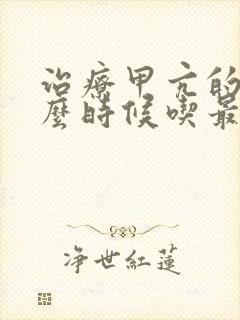 治療甲亢的
麼時候喫最
净世紅蓮